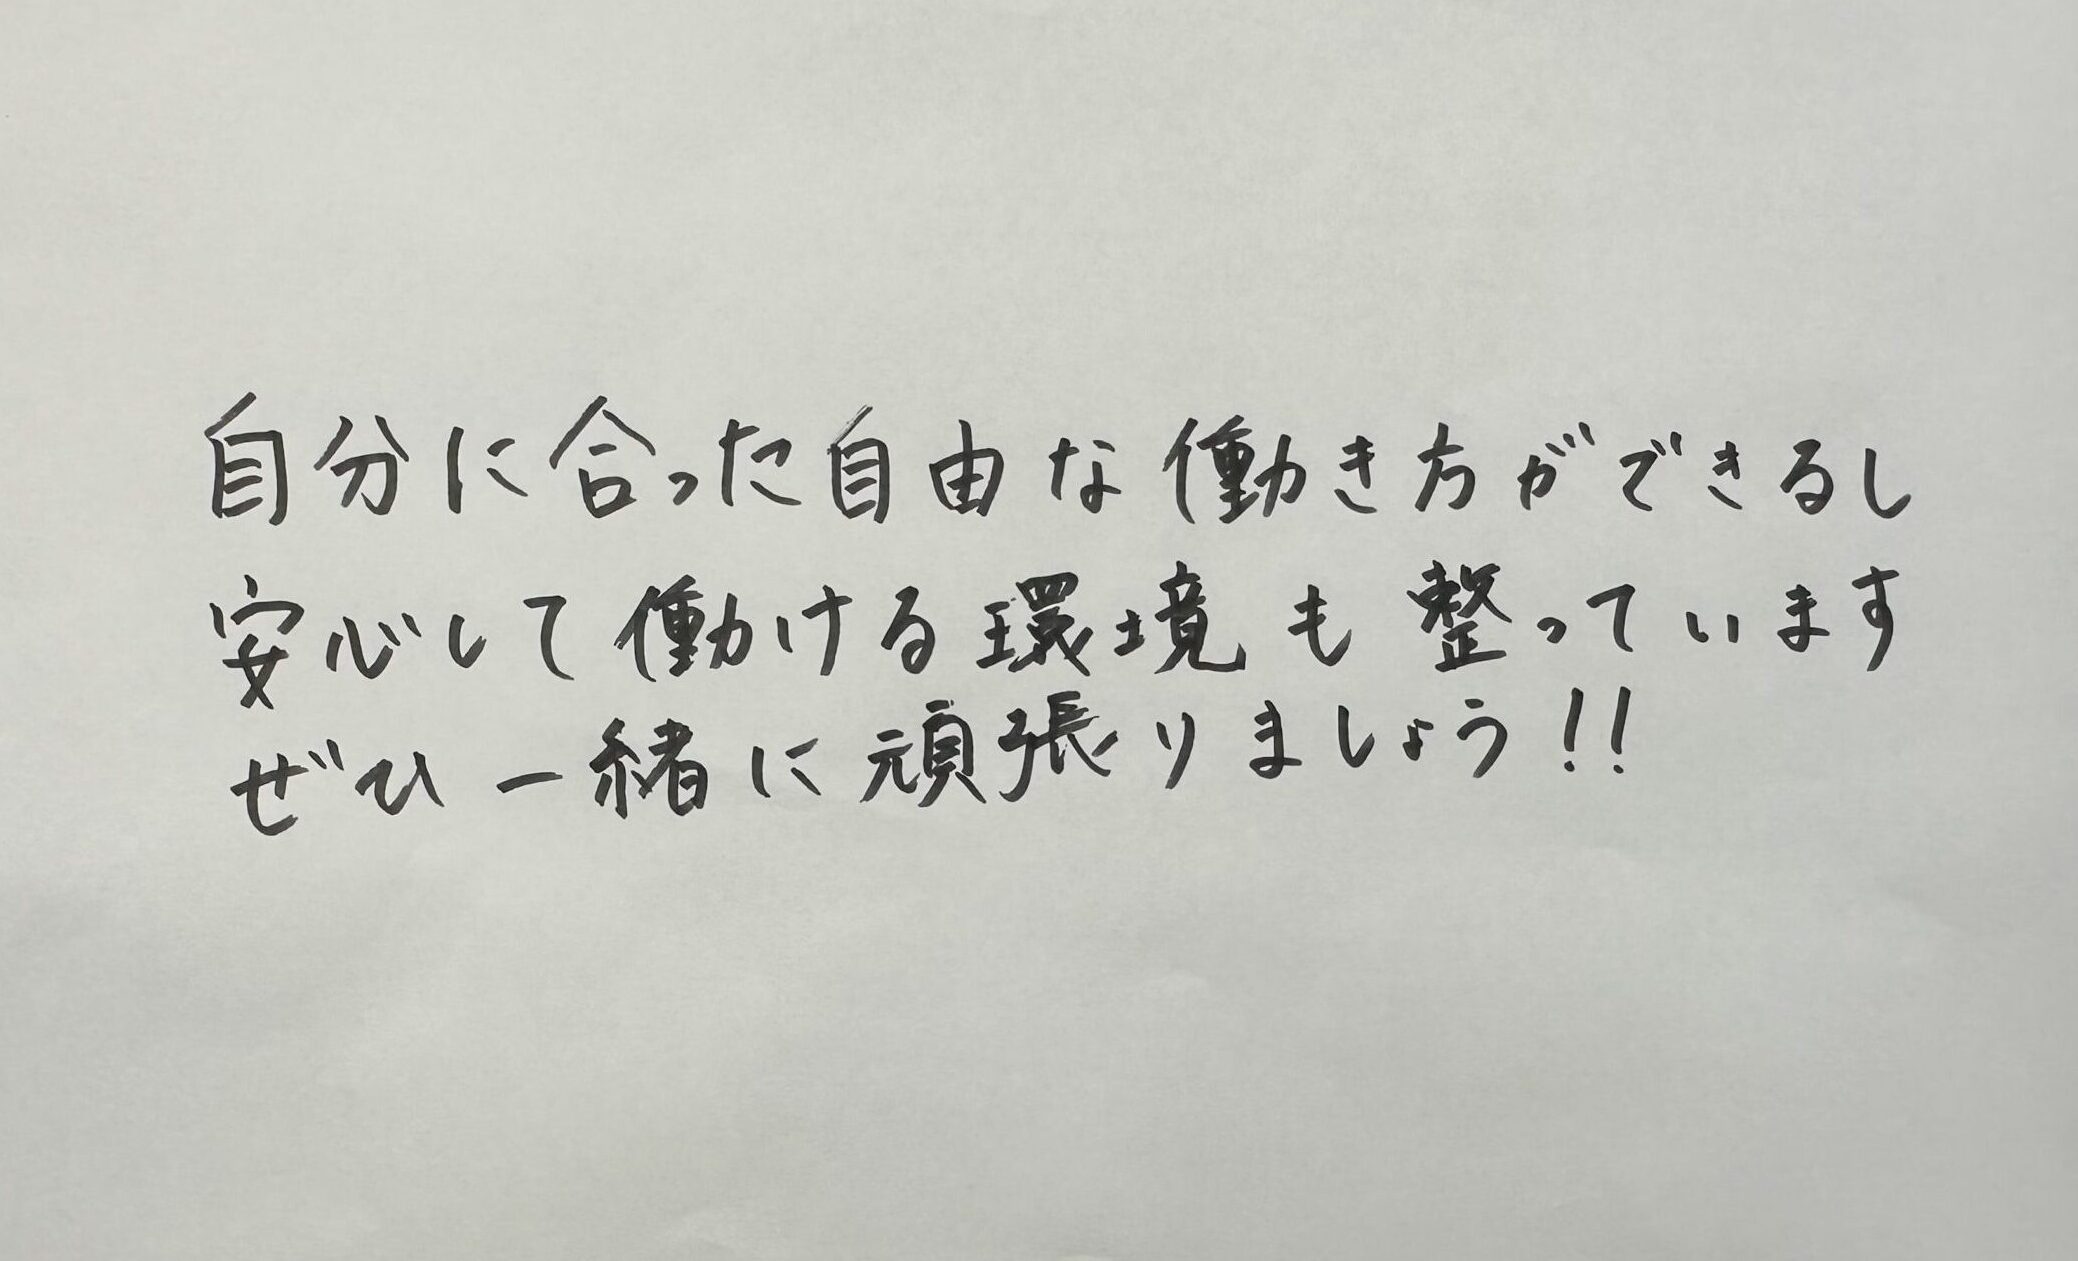 自分に合った自由な働き方ができるし
安心して働ける環境も整っています
ぜひ一緒に頑張りましょう!!